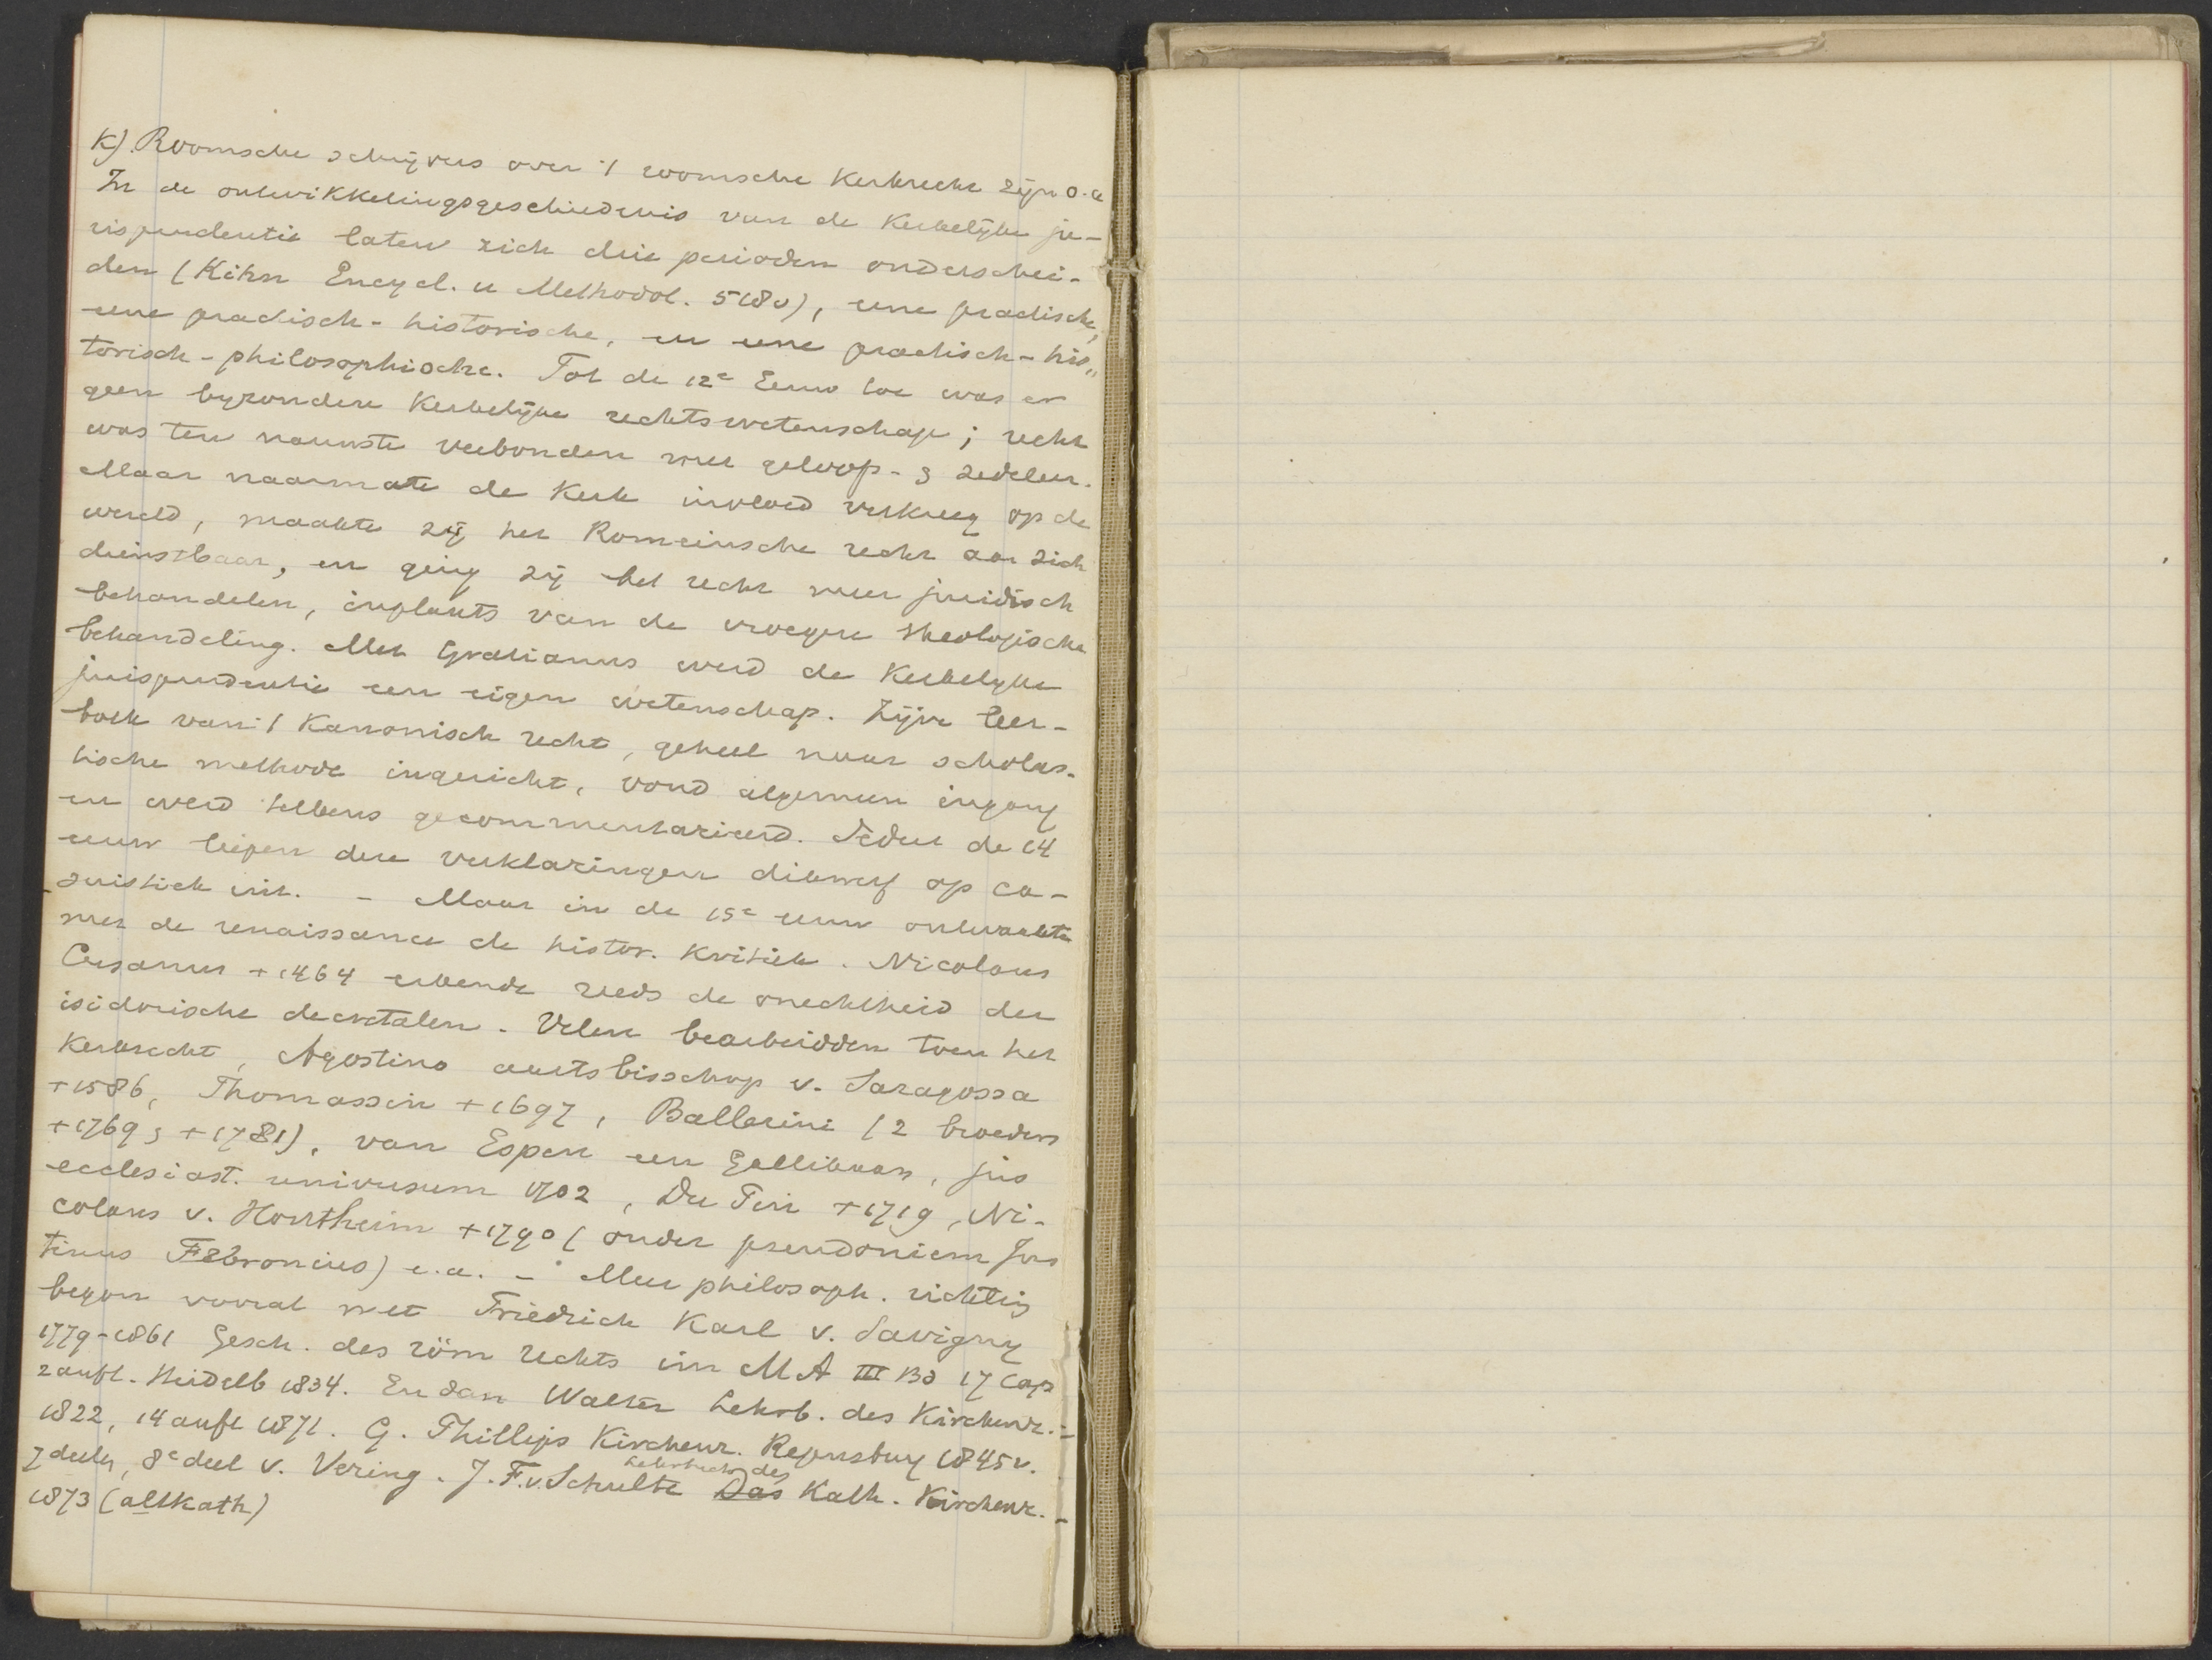 K). Roomsche schrijvers over 't roomsche Kerkrecht zijn o.a
In de ontwikkelingsgeschiedenis van de Kerkelijke ju-
risprudentie laten zich drie perioden onderschei-
den (Kihn Encycl. u Methodol. 5180), eene practische,
eene practisch-historische, en eene practisch-his„
torisch-philosophische. Tot de 12e Eeuw toe was er
geen byzondere Kerkelijke rechtswetenschap; recht
was ten nauwste verbonden met geloofs- & zedeleer.
Maar naarmate de Kerk invloed verkreeg op de
wereld, maakte zij het Romeinsche recht aan zich
dienstbaar, en ging zij het recht meer juridisch
behandelen, inplaats van de vroegere theologische
behandeling. Met Gratianus werd de Kerkelyke
jurisprudentie een eigen wetenschap. Zijne leer-
boek van 't Kanonisch recht, geheel naar scholas-
tische methode ingericht, vond algemeen ingang
en werd telkens gecommentarieerd. Sedert de 14
eeuw liepen deze verklaringen dikwerf op ca-
suistiek uit. - Maar in de 15e eeuw ontwaakte
met de renaissance de histor. Kritiek. Nicolaus
Cusanus +1464 erkende reeds de onechtheid der
isidorische decretalen. Velen bearbeidden toen het
Kerkrecht, Agostino aartsbisschop v. Saragossa
+1586, Thomassin +1697, Ballerini (2 broeders
+1769 & +1781), van Espen een Gallikaan, jus
ecclesiast. universum 1702, Du Pin +1719, Ni-
colaus v. Hontheim +1790 (onder pseudoniem Jus
tinus Febronius) e.a. - Meer philosoph. richting
begon vooral met Friedrich Karl v. Savigny
1779-1861 Gesch. des röm rechts im MA III Bd 17 Cap
2 aufl. Heidelb 1834. En dan Walter Lehrb. des Kirchenr.-
1822, 14 aufl 1871. G. Phillips Kirchenr. Regensburg 1845 v.
7 deelen, 8e deel v. Vering. J.F.v.Schulte Lehrbuch des Das Kath. Kirchenr.-
1873 (altkath)